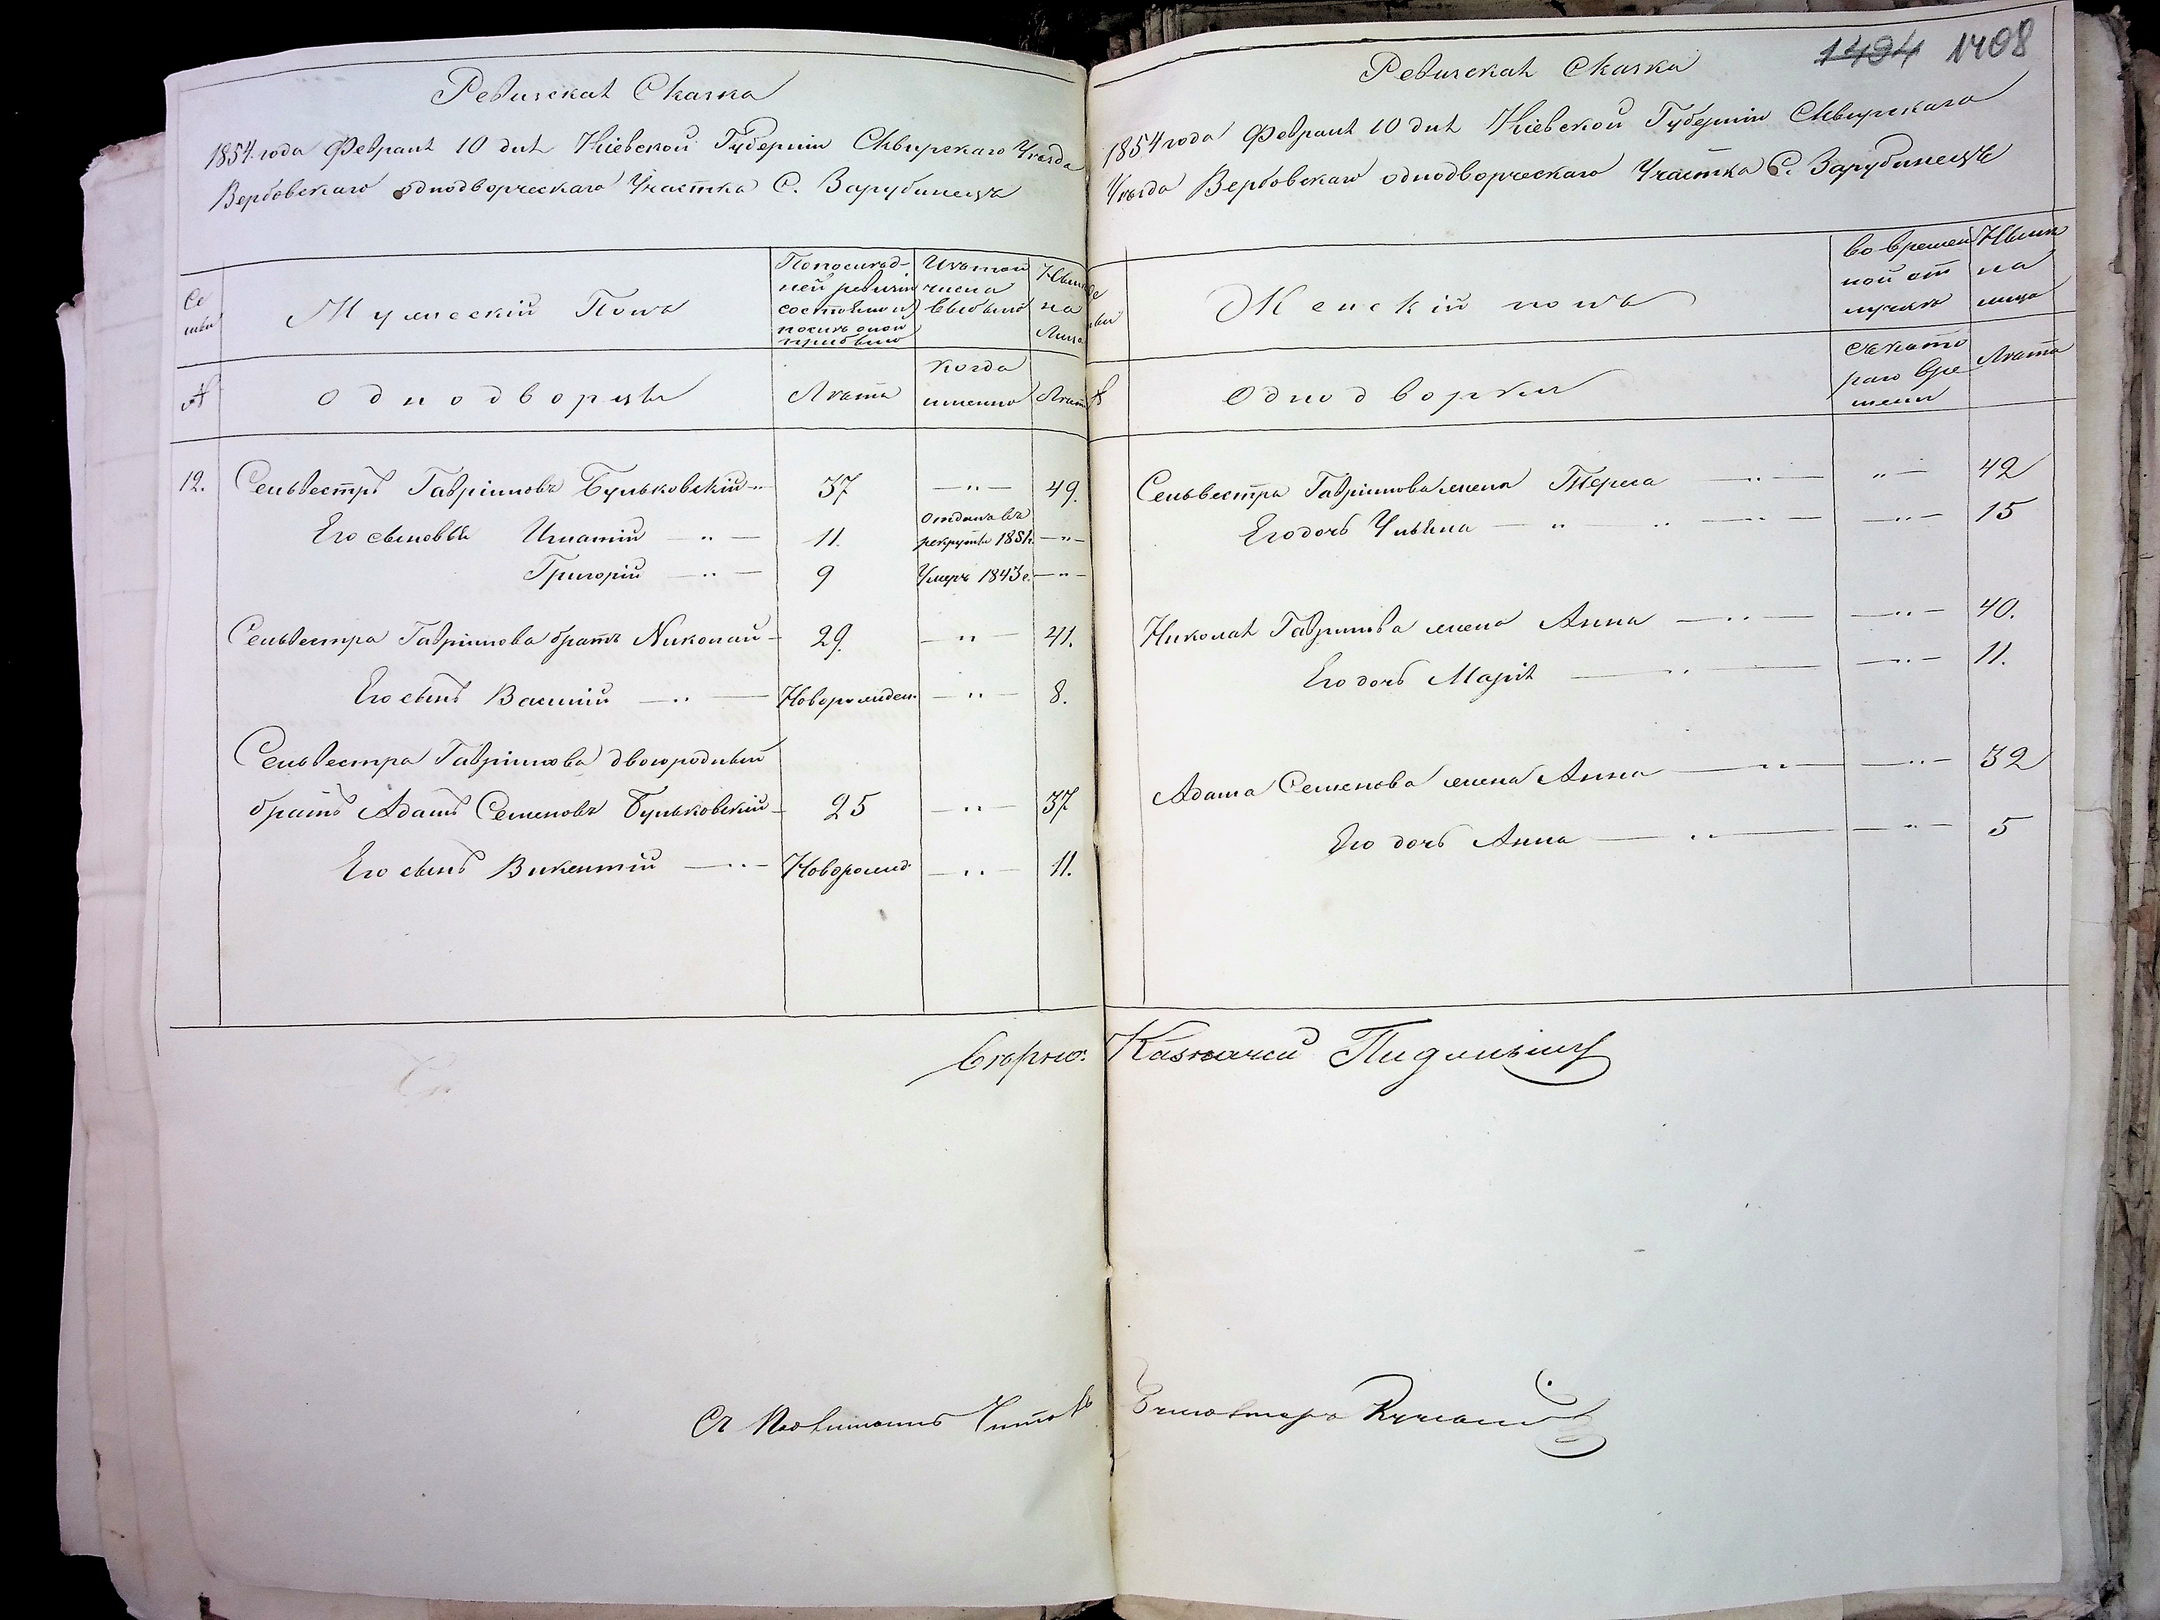 Ревизская Сказка
1854 года Февраля 10 дня Кіевской Губерніи Сквирскаго Уѣзда
Вербовскаго однодворческаго Участка С. Зарубинецъ
Се
мьи
Мужескій Полъ
По послѣд-
ней ревизіи
состояло и
послѣ оной
прибыло
Изъ того
числа
выбыло
Нынѣ
на
лицо
№
Однодворцы
Лѣта
Когда
именно
Лѣта
12. Сельвестръ Гавріиловъ Бульковскій 37 — " — 49.
Его сыновья Игнатій — " — 11. Отданъ въ рекруты 1851 г. — " —
Григорій — " — 9 Умеръ 1843 г. — " —
Сельвестра Гавріилова братъ Николай - 29. — " — 41.
Его сынъ Василій — " — Новорожден. — " — 8.
Сельвестра Гавріилова двоюродный
братъ Адамъ Семеновъ Бульковскій - 25 — " — 37
Его сынъ Викентій — " — Новорожд. — " — 11.
1494 1408
Ревизская Сказка
1854 года Февраля 10 дня Кіевской Губерніи Сквирскаго
Уѣзда Вербовскаго однодворческаго Участка С. Зарубинецъ
Женскій полъ
Во времен
ной от
лучкѣ
Нынѣ
на
лицо
№
Однодворки
Съ като
раго вре
мени
Лѣта
Сельвестра Гавріилова жена Тереса — " — " — 42
Его дочь Ульяна — " — " — " — " — 15
Николая Гаврилова жена Анна — " — " — 40.
Его дочь Марія — " — " — 11.
Адама Семенова жена Анна — " — " — 32
Его дочь Анна — " — " — 5
Казначей
Съ